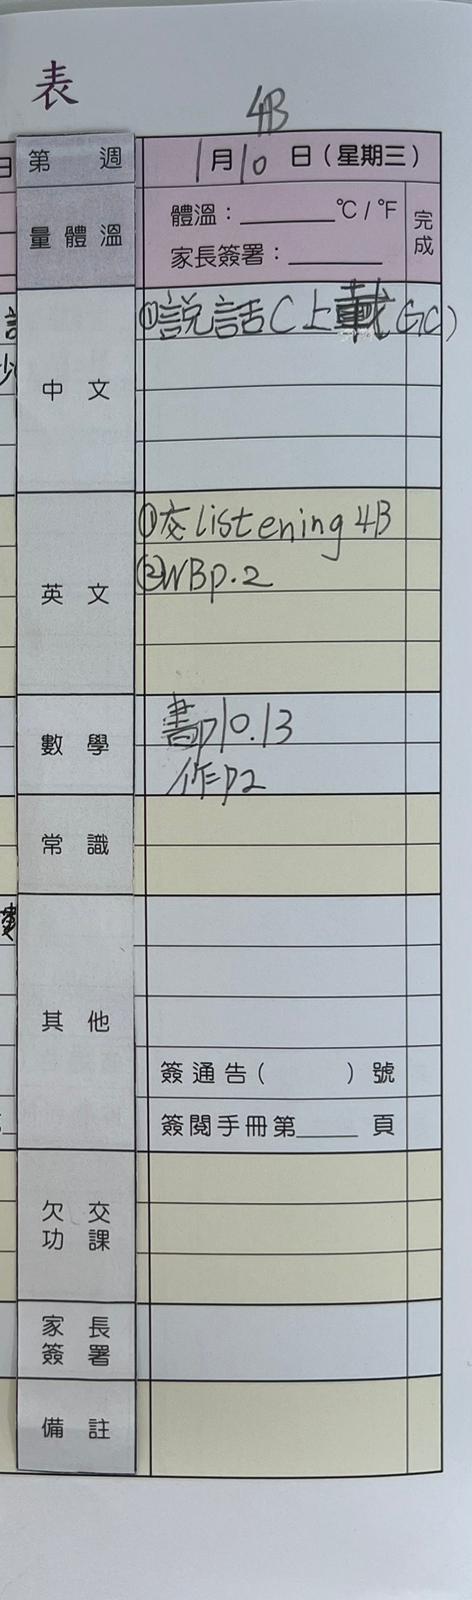 表
4B
第 週
1月10日(星期三)
量體溫
體溫:______°C/°F
家長簽署:______
完成
中文
①說話C上載(GC)
英文
①交listening 4B
②WBp.2
數學
書p10.13
作p2
常識
其他
簽通告( )號
簽閱手冊第____頁
欠交功課
家長簽署
備註